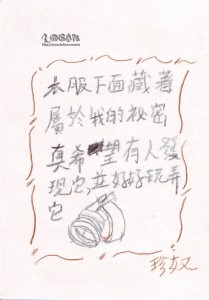 衣服下面藏着
屬於我的祕密
真希望有人發
現它,並好好玩弄
它